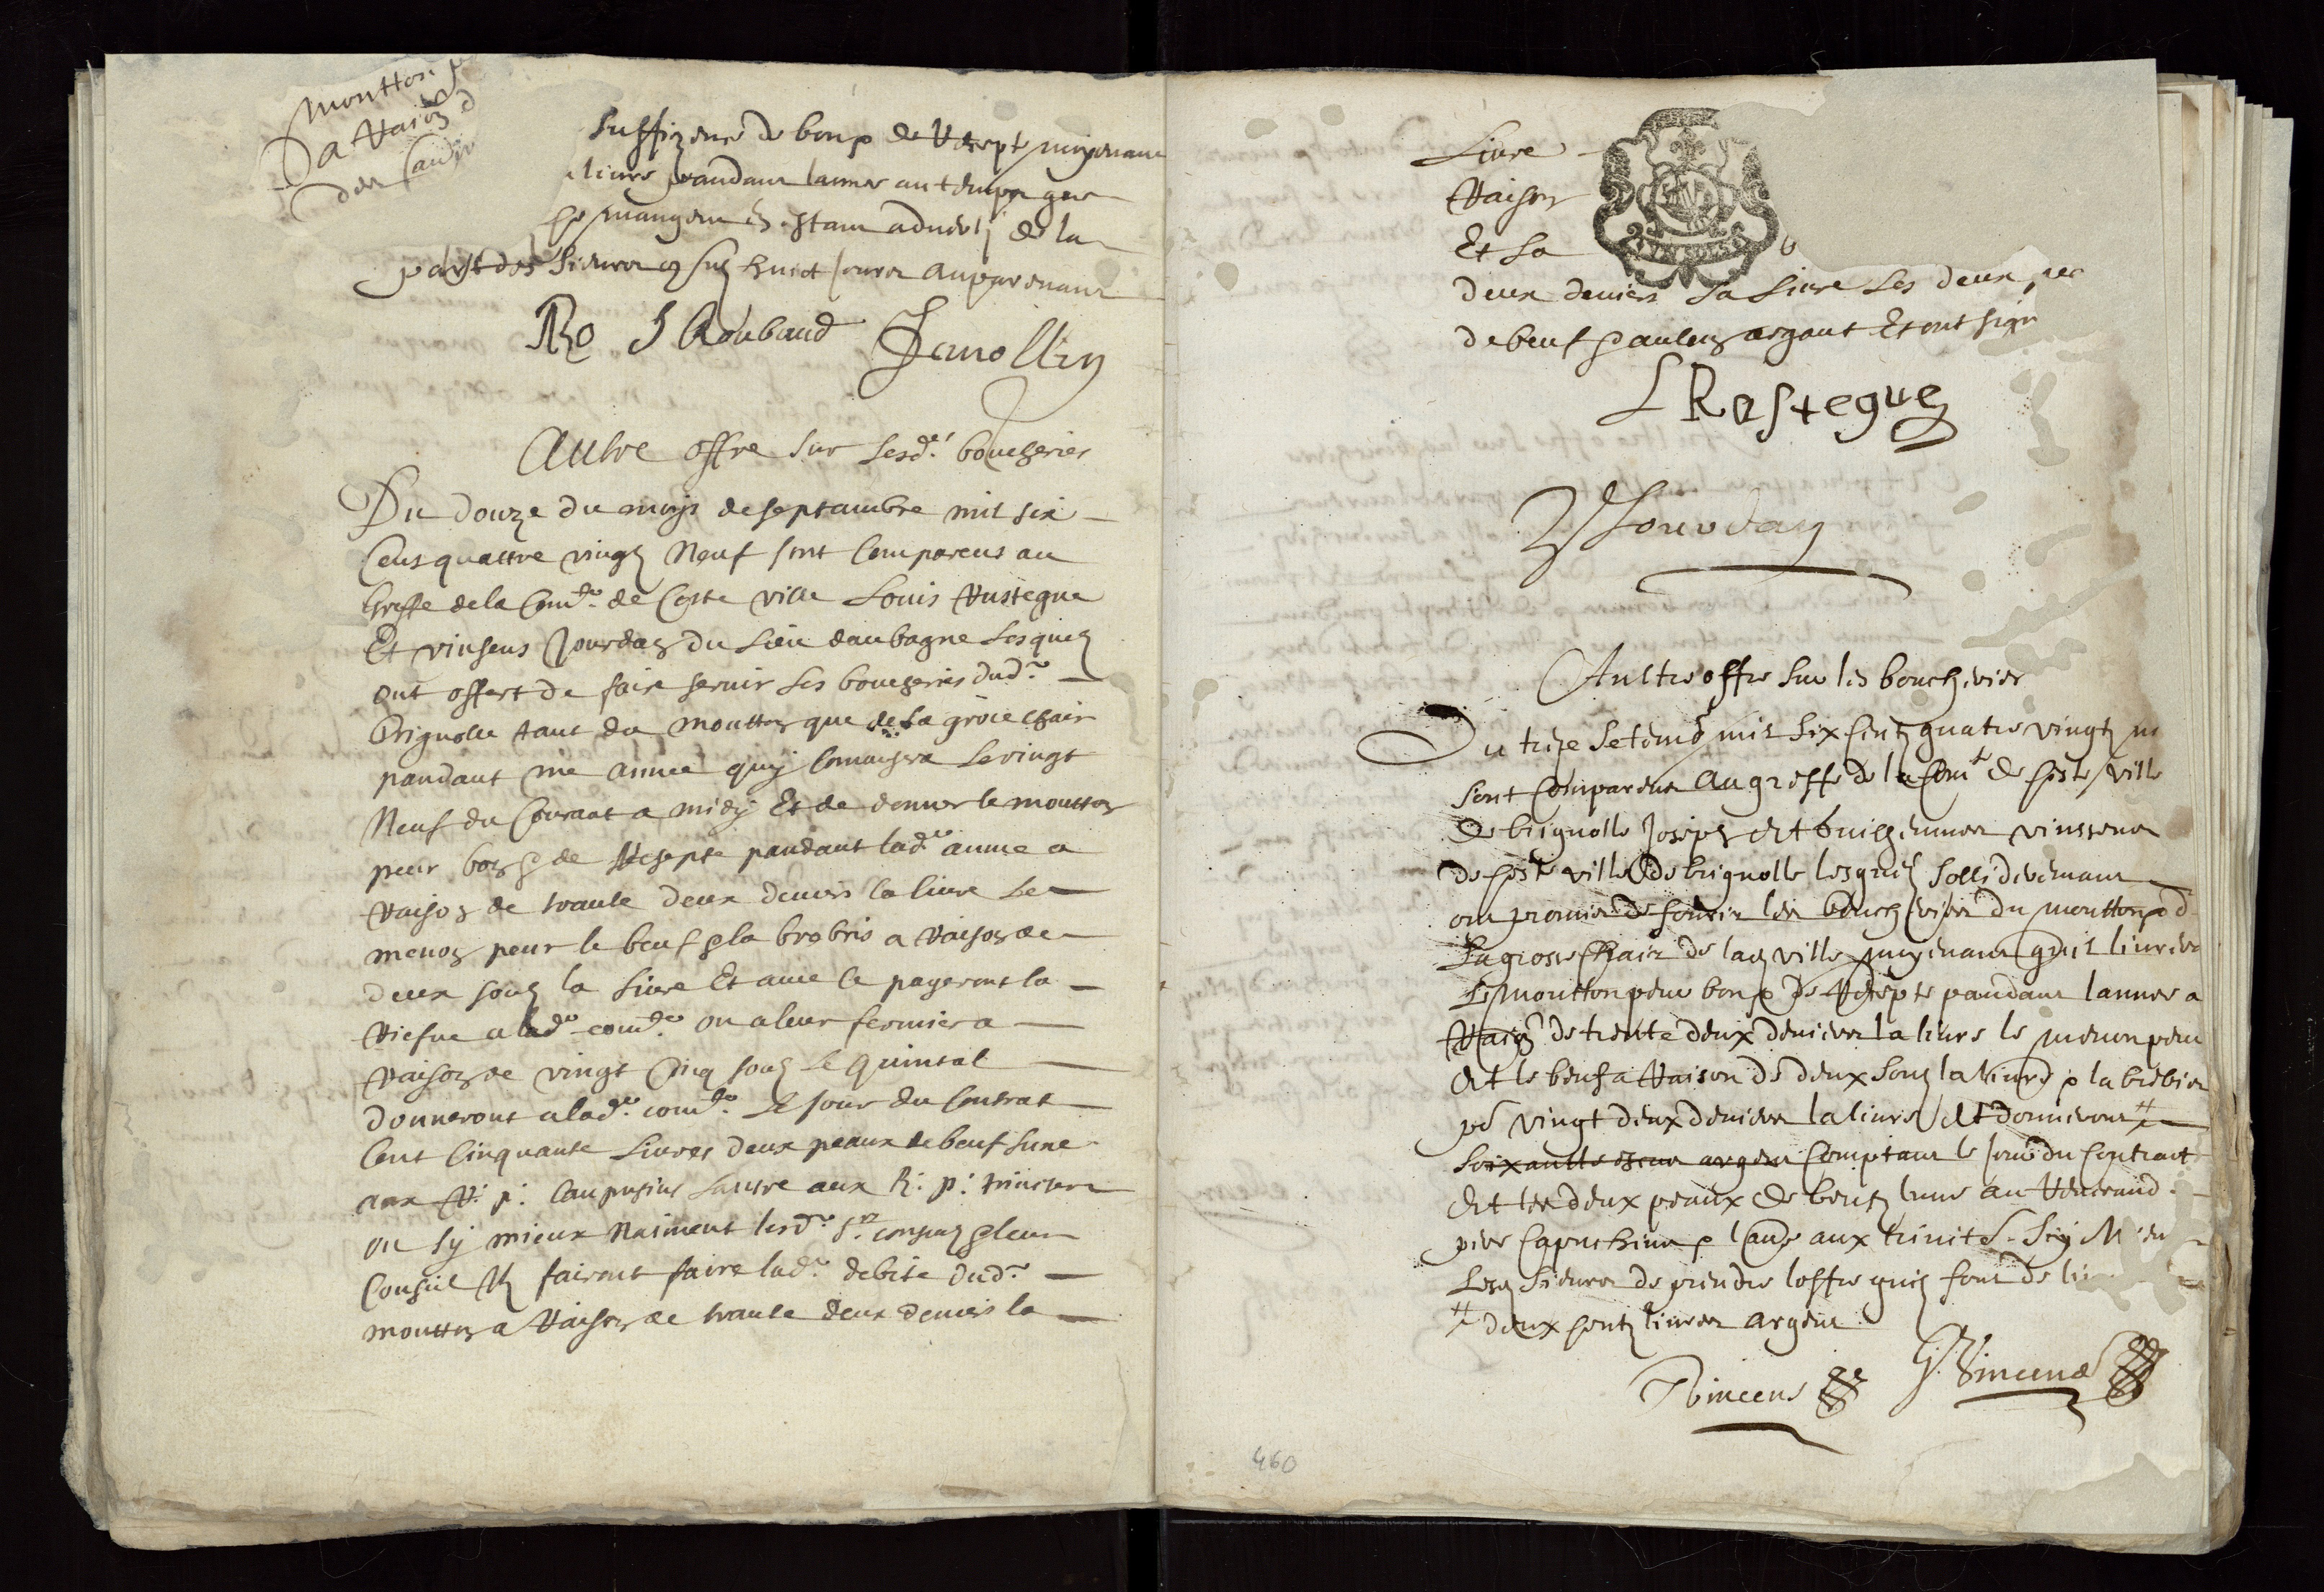 moutton
a Raison d
des
suffizence de bon & de Recepte moyenant
livre pandant lannee au temps que
se mangera En estant adverty de la
part des sieurs consulz huict jours auparavant
J Roubaud
Autre offre sur lesd. boucheries
Du douze du moys de septambre mil six
Cens quattre vingtz Neuf sont Comparens au
Greffe de la Comte. de Ceste ville Louis Rostegue
Et vinsens Jourdan du Lieu daubagne lesquelz
ont offert de faire servir les boucheries dud.
Brignolle tant du moutton que de la groce chair
pandant une annee quy Comansera Le vingt
Neuf du Courant a midy Et de donner le moutton
pour bon & de Resepte pandant lad. annee a
Raison de trante deux deniers la livre Le
menon pour le beuf & la brebris a Raison de
deux soulz la livre Et avec ce payeront la
Resve a lad. comte. ou a leur fermier a
Raison de vingt Cinq soulz Le quintal
donneront a lad. comte. Le jour du Contrat
Cent Cinquante Livres deux peaux de beuf lune
aux R: p: Capusins lautre aux R: p: trinitere
ou sy mieux Naiment lesd. srs. consulz & leur
Conseil Ilz fairont faire lad. debite dud.
moutton a Raison de trante deux deniers la
Livre
Raison
Et La
deux deniers La Livre Les deux
de beuf & aulcun argant Et ont sign
L Rostegue
V Jourdan
Aultre offre sur les boucheries
Du treze setembre mil six centz quatre vingtz
sont Comparens au greffe de la Comte de ceste ville
de brignolle Joseph et vinssens
de ceste ville de brignolle lesquelz sollideremant
ont promis de servir les boucheries du moutton & d
La grosse Chair de lad ville moyenant quil livrera
Le moutton pour bon & de Recepte pandant lannee a
Raison de trente deux deniers la livre le menon pour
Et le beuf a Raison de deux soulz la livre & la brebis
pr vingt deux deniers la livre Et donneront #
soixante escus argent Comptant le jour du Contract
Et les deux peaux de beufz lune au Reverand
pere Capuchins & lautre aux trinites. Sy Mieu
Lesd sieurs de prendre loffre quilz font de
# deux centz livres argent
Vincens
G Vincens
460